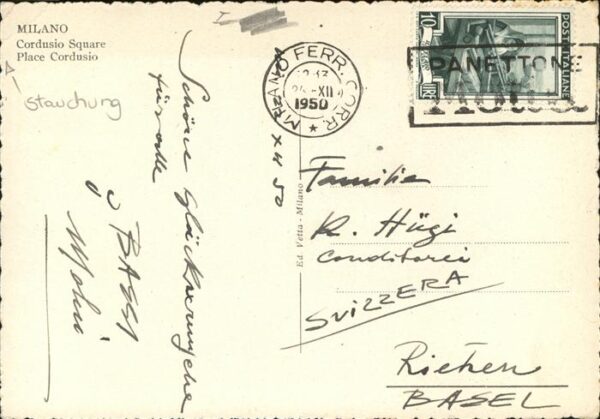 MILANO
Cordusio Square
Place Cordusio
Stauchung
Schöne Glückwünsche
für alle
BASSI
Milano XII 50
Ed. Vetta - Milano
MILANO FERR. CORR.
XII
1950
10 LIRE
POSTE ITALIANE
PANETTONE
Motta
Familie
R. Hügi
Conditorei
SVIZZERA
Riehen
BASEL